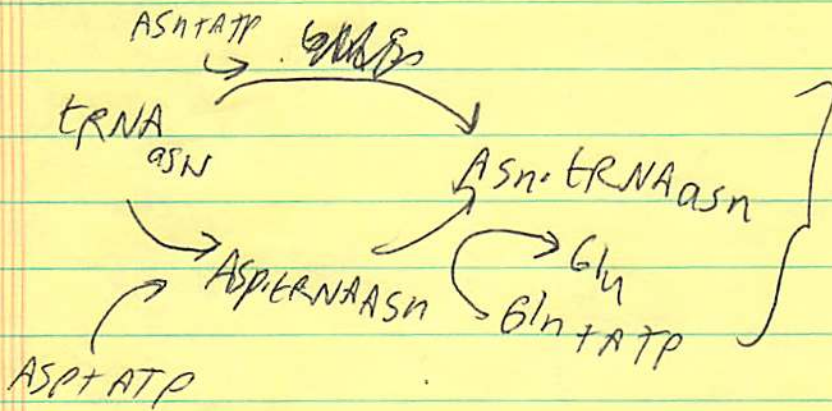 Asn+ATP
tRNA asn
Asn·tRNA asn
Asp·tRNA Asn
Gln+ATP
Asp+ATP